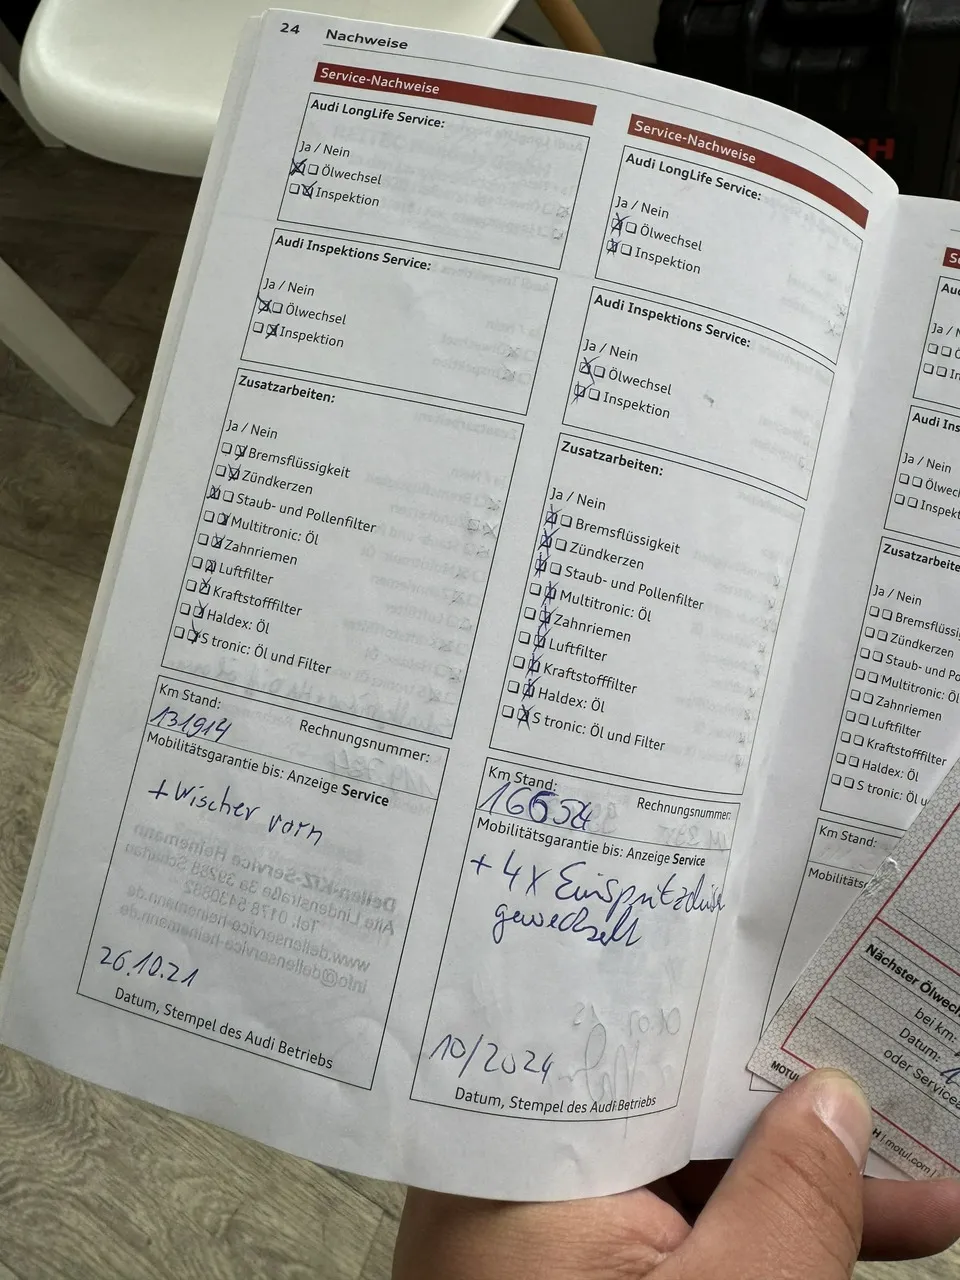 24
Nachweise
Service-Nachweise
Audi LongLife Service:
Ja / Nein
Ölwechsel
Inspektion
Audi Inspektions Service:
Ja / Nein
Ölwechsel
Inspektion
Zusatzarbeiten:
Ja / Nein
Bremsflüssigkeit
Zündkerzen
Staub- und Pollenfilter
Multitronic: Öl
Zahnriemen
Luftfilter
Kraftstofffilter
Haldex: Öl
S tronic: Öl und Filter
Km Stand:
131914
Rechnungsnummer:
Mobilitätsgarantie bis: Anzeige Service
+ Wischer vorn
26.10.21
Datum, Stempel des Audi Betriebs
Service-Nachweise
Audi LongLife Service:
Ja / Nein
Ölwechsel
Inspektion
Audi Inspektions Service:
Ja / Nein
Ölwechsel
Inspektion
Zusatzarbeiten:
Ja / Nein
Bremsflüssigkeit
Zündkerzen
Staub- und Pollenfilter
Multitronic: Öl
Zahnriemen
Luftfilter
Kraftstofffilter
Haldex: Öl
S tronic: Öl und Filter
Km Stand:
Rechnungsnummer:
Mobilitätsgarantie bis: Anzeige Service
+ 4x Einspritzdüse
gewechselt
10/2024
Datum, Stempel des Audi Betriebs
Ja / Nein
Ja / Nein
Zusatzarbeite
Ja / Nein
Bremsflüssig
Zündkerzen
Staub- und Po
Multitronic: Öl
Zahnriemen
Luftfilter
Kraftstofffilter
Haldex: Öl
S tronic: Öl u
Km Stand:
Mobilitäts
Nächster Ölwech
bei km:
Datum:
oder Servicea
MOTU
H | motul.com |